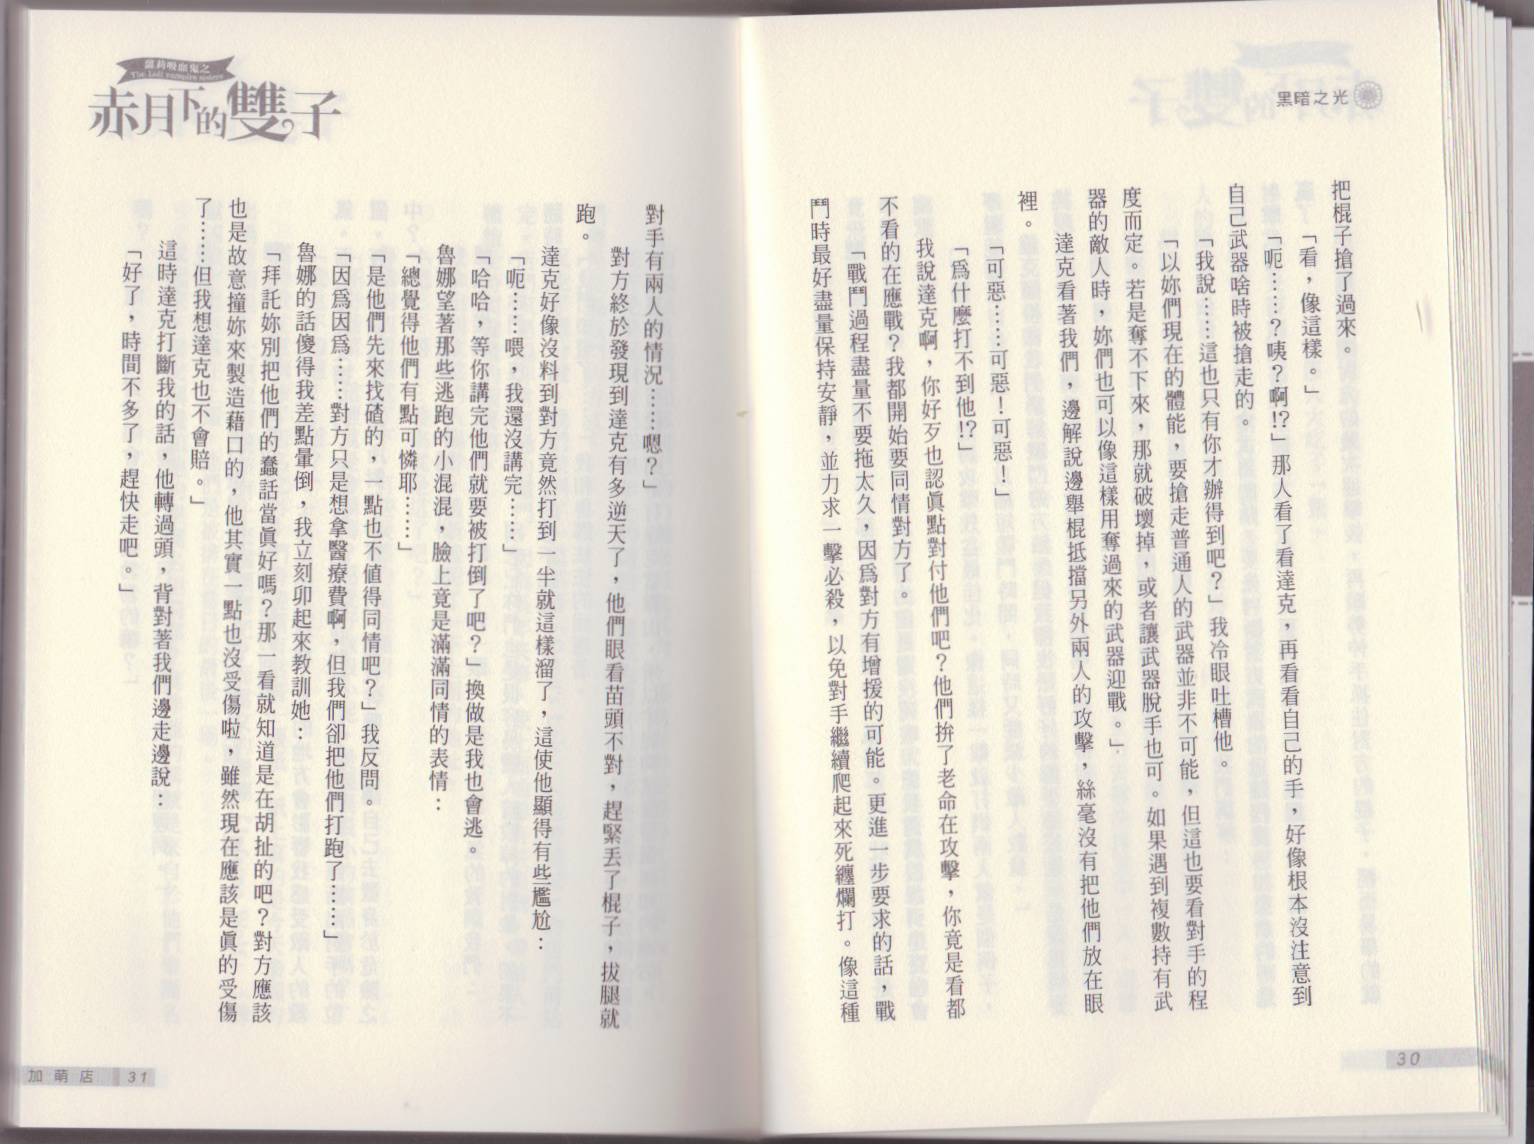 黑暗之光
把棍子搶了過來。
「看，像這樣。」
「呃……？咦？啊!?」那人看了看達克，再看看自己的手，好像根本沒注意到
自己武器啥時被搶走的。
「我說……這也只有你才辦得到吧？」我冷眼吐槽他。
「以妳們現在的體能，要搶走普通人的武器並非不可能，但這也要看對手的程
度而定。若是奪不下來，那就破壞掉，或者讓武器脫手也可。如果遇到複數持有武
器的敵人時，妳們也可以像這樣用奪過來的武器迎戰。」
達克看著我們，邊解說邊舉棍抵擋另外兩人的攻擊，絲毫沒有把他們放在眼
裡。
「可惡……可惡！可惡！」
「爲什麼打不到他!?」
我說達克啊，你好歹也認眞點對付他們吧？他們拚了老命在攻擊，你竟是看都
不看的在應戰？我都開始要同情對方了。
「戰鬥過程盡量不要拖太久，因爲對方有增援的可能。更進一步要求的話，戰
鬥時最好盡量保持安靜，並力求一擊必殺，以免對手繼續爬起來死纏爛打。像這種
30
蘿莉吸血鬼之
The Loli vampire sisters
赤月下的雙子
對手有兩人的情況……嗯？」
對方終於發現到達克有多逆天了，他們眼看苗頭不對，趕緊丟了棍子，拔腿就
跑。
達克好像沒料到對方竟然打到一半就這樣溜了，這使他顯得有些尷尬：
「呃……喂，我還沒講完……」
「哈哈，等你講完他們就要被打倒了吧？」換做是我也會逃。
魯娜望著那些逃跑的小混混，臉上竟是滿滿同情的表情：
「總覺得他們有點可憐耶……」
「是他們先來找碴的，一點也不值得同情吧？」我反問。
「因爲因爲……對方只是想拿醫療費啊，但我們卻把他們打跑了……」
魯娜的話傻得我差點暈倒，我立刻卯起來教訓她：
「拜託妳別把他們的蠢話當眞好嗎？那一看就知道是在胡扯的吧？對方應該
也是故意撞妳來製造藉口的，他其實一點也沒受傷啦，雖然現在應該是眞的受傷
了……但我想達克也不會賠。」
這時達克打斷我的話，他轉過頭，背對著我們邊走邊說：
「好了，時間不多了，趕快走吧。」
加萌店 31